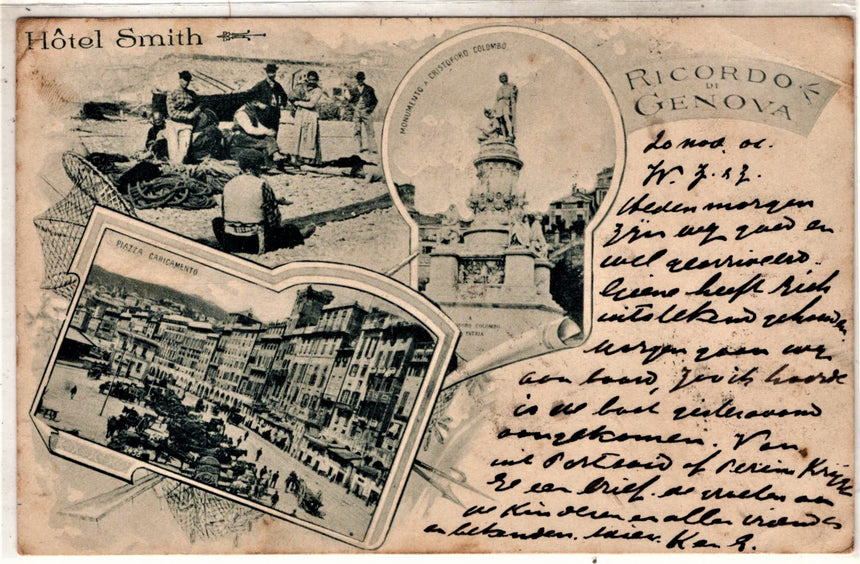 Hôtel Smith
MONUMENTO A CRISTOFORO COLOMBO
RICORDO
DI
GENOVA
PIAZZA CARICAMENTO
A
COLOMBO
PATRIA
20 nov. 01.
W. Z. & Z.
Heden morgen
zijn wij goed en
wel gearriveerd.
heeft zich
uitstekend gehouden
Morgen gaan wij
aan boord, zooals hoorde
is de boot gisteravond
aangekomen. Van
uit Portsaid of Perim krijgt
ge een brief. de groeten aan
de kinderen en alle vrienden
en bekenden.